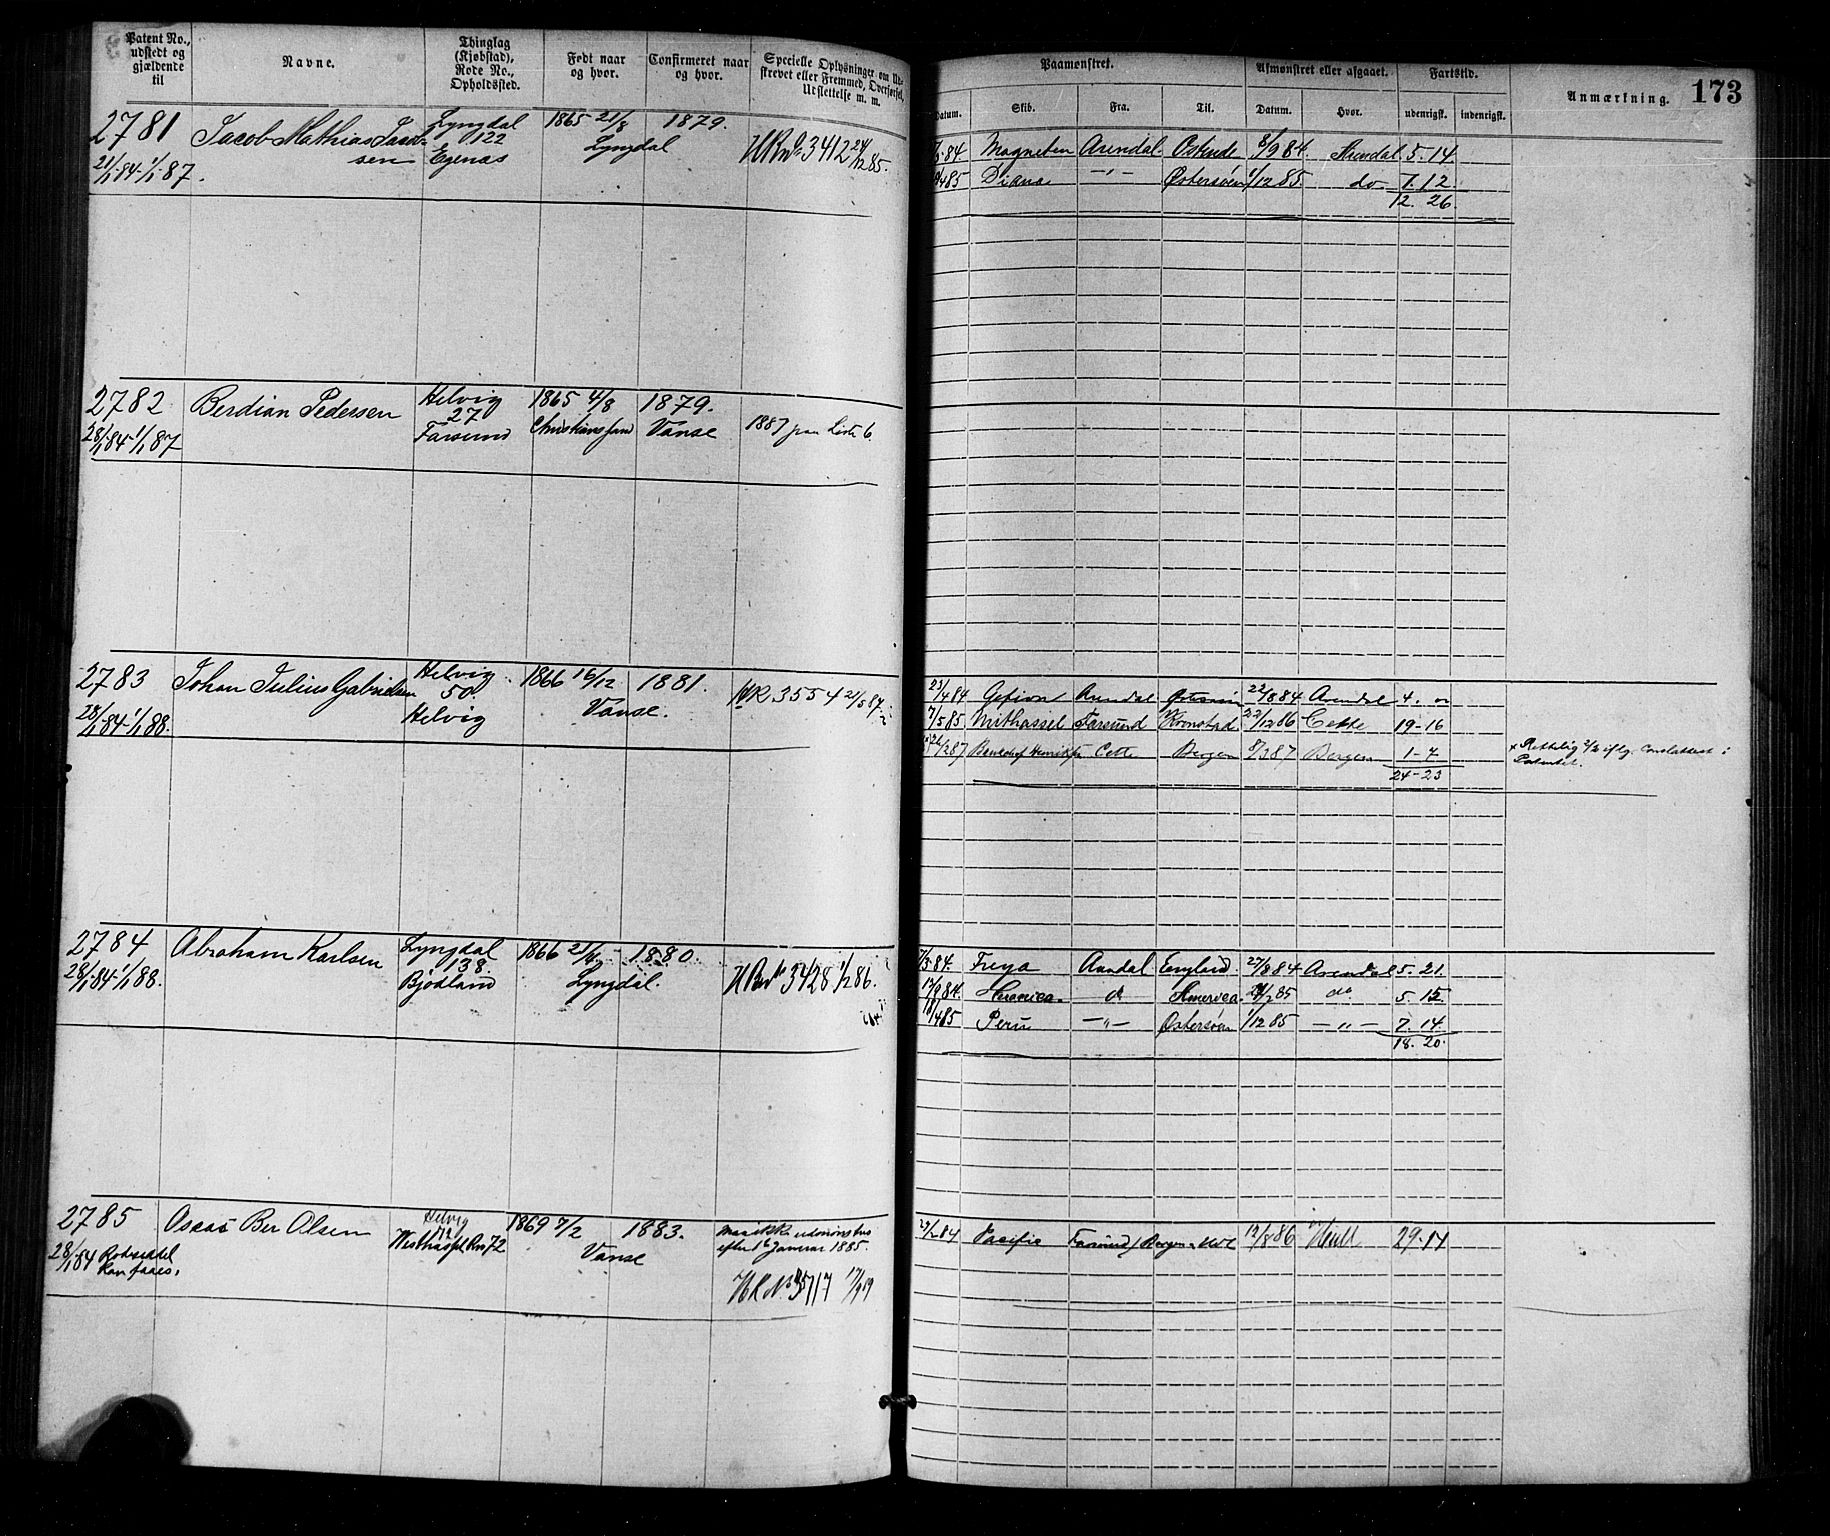 Patent No., udstedt og gjældende til
Navne.
Thinglag (Kjøbstad), Rode No., Opholdssted.
Født naar og hvor.
Confirmeret naar og hvor.
Specielle Oplysninger om Udskrevet eller Fremmed, Overførsel, Udslettelse m. m.
Paamønstret.
Datum.
Skib.
Fra.
Til.
Afmønstret eller afgaaet.
Datum.
Hvor.
Fartstid.
udenrigsk.
indenrigsk.
Anmærkning.
173
2781
21/1 84 - 1/1 87.
Jacob Mathias Jacobsen
Lyngdal
122
Egenæs
1865 21/8
1879.
Lyngdal
3412 24/12 85.
84 Magneten Arendal Ostende 8/9 84 Arendal 5. 14
85 Diana — " — Østersøen 1/12 85 do 7. 12
12. 26.
2782
28/1 84 - 1/1 87
Berdian Pedersen
Helvig
27
Farsund
1865 4/8
Christianssand
1879.
Vanse
1887 paa Liste 6.
2783
28/1 84 - 1/1 88.
Johan Julius Gabrielsen
Helvig
50
Helvig
1866 16/12
1881.
Vanse.
3554 21/5 87
23/4 84 Gefion Arendal 22/8 84 Arendal 4. "
7/5 85 Farsund Kronstad 22/12 86 Cette 19-16
26/2 87 Cette Bergen 8/3 87 Bergen 1-7
24-23
2784
28/1 84 - 1/1 88.
Abraham Karlsen
Lyngdal
138
Bjødland
1866 21/4
1880
Lyngdal.
3428 1/12 86.
84. Freya Arendal England 27/8 84 Arendal 5. 21.
17/9 84. do America 85 do 5. 15
18/4 85 Peru — " — Østersøen 1/12 85 — " — 7. 14.
18. 20.
2785
28/1 84 Rodseddel
kan faaes.
Oscar Ber Olsen
Helvig
72
Rn 72
1869 7/2
1883.
Vanse
Maa ikke udmønstres
efter 1ste Januar 1885.
3717
27/2 84 Pacific Farsund / Bergen 12/8 86 Hull 29-14